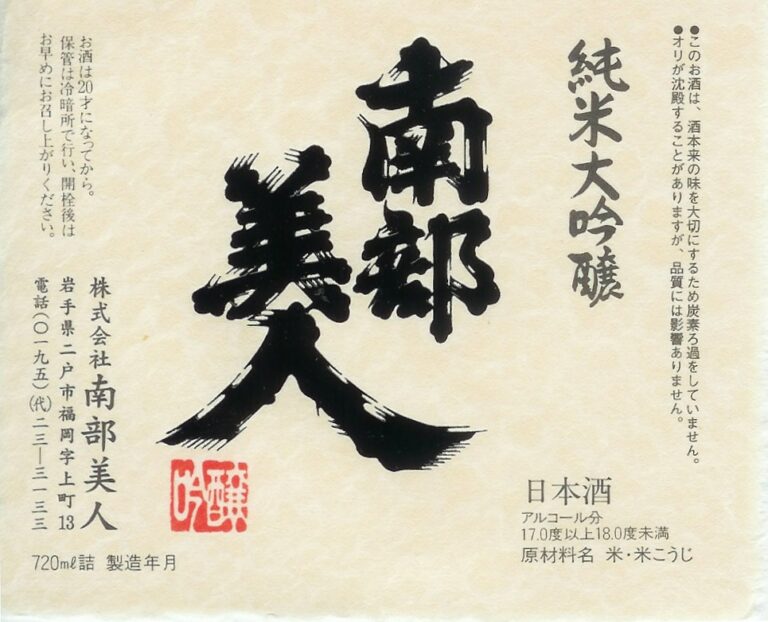 ●このお酒は、酒本来の味を大切にするため炭素ろ過をしていません。
●オリが沈殿することがありますが、品質には影響ありません。
純米大吟醸
南部
美人
吟醸
お酒は20才になってから。
保管は冷暗所で行い、開栓後は
お早めにお召し上がりください。
株式会社南部美人
岩手県二戸市福岡字上町13
電話(〇一九五)(代)二三―三一三三
720ml詰 製造年月
日本酒
アルコール分
17.0度以上18.0度未満
原材料名 米・米こうじ